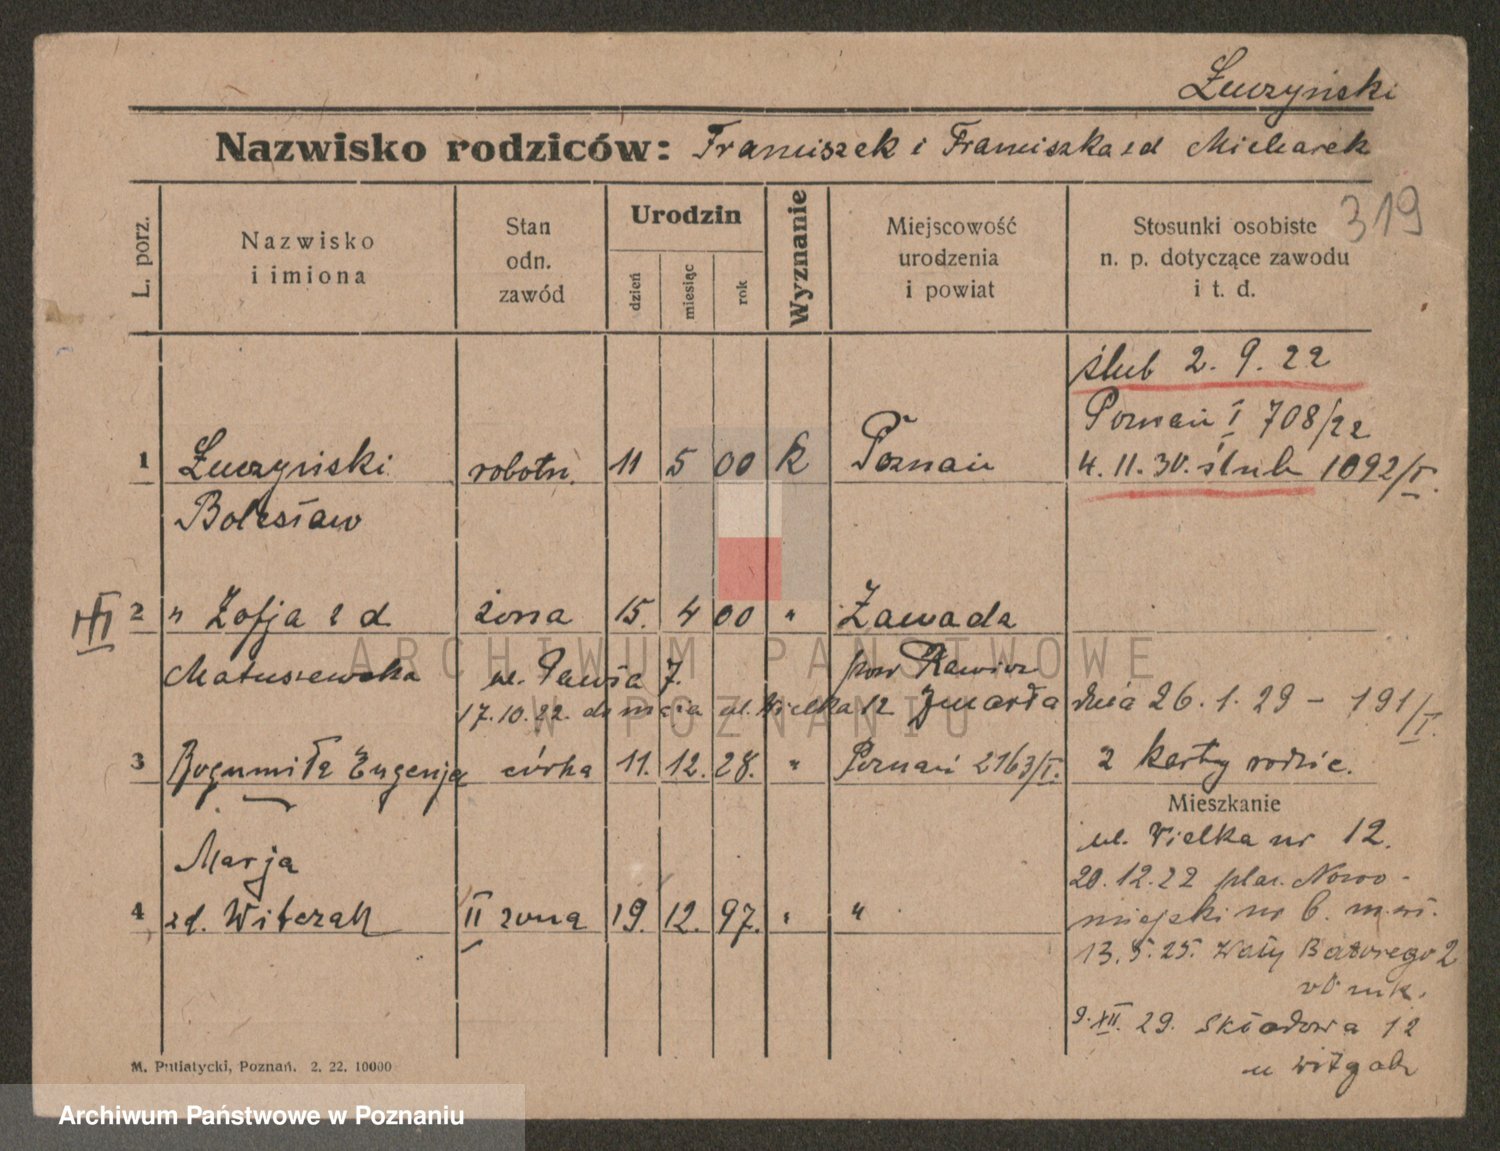 Łuczyński
Nazwisko rodziców: Franciszek i Franciszka z d Micharek
319
L. porz.
Nazwisko
i imiona
Stan
odn.
zawód
Urodzin
dzień
miesiąc
rok
Wyznanie
Miejscowość
urodzenia
i powiat
Stosunki osobiste
n. p. dotyczące zawodu
i t. d.
ślub 2. 9. 22
Poznań I 708/22
1 Łuczyński robotn. 11 5 00 k Poznań 4. 11. 30. ślub 1092/I.
Bolesław
III 2 " Zofja z d żona 15. 4 00 " Zawada
Matuszewska ul. Pawła 7. pow Rawicz
17.10.22. do ul. Wielka 12 Zmarła dnia 26. 1. 29 - 191/I.
3 Bogumiła Eugenja córka 11. 12. 28. " Poznań 2163/I. 2 karty rodzic.
Mieszkanie
ul. Wielka nr 12.
Marja
20. 12. 22 plac. Nowo-
4 zd. Witczak II żona 19. 12. 97. " "
miejski nr 6. m.
13. 5. 25. Wały Batorego 2
9. XII. 29. Składowa 12
u
M. Putiatycki, Poznań. 2. 22. 10000
ARCHIWUM PAŃSTWOWE
W POZNANIU
Archiwum Państwowe w Poznaniu